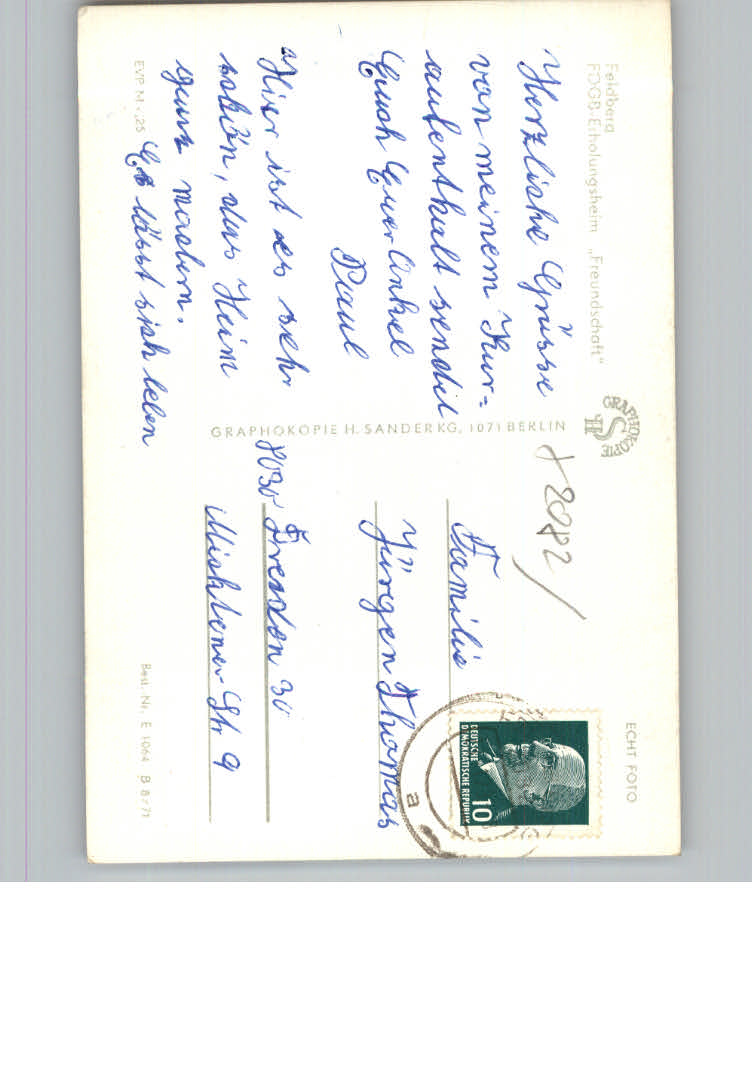 Feldberg
FDGB-Erholungsheim „Freundschaft"
Herzliche Grüsse
von meinem Kur=
aufenthalt sendet
Euch Euer Onkel
Paul
Hier ist es sehr
schön, das Heim
ganz modern.
Es lässt sich leben
EVP M -,25
GRAPHOKOPIE H. SANDER KG, 1071 BERLIN
GRAPHOKOPIE
HS
ECHT FOTO
82082/
DEUTSCHE
DEMOKRATISCHE REPUBLIK
10
a
Familie
Jürgen Thomas
8030 Dresden 30
Micktener Str 9
Best. Nr. E 1064 B 8/71